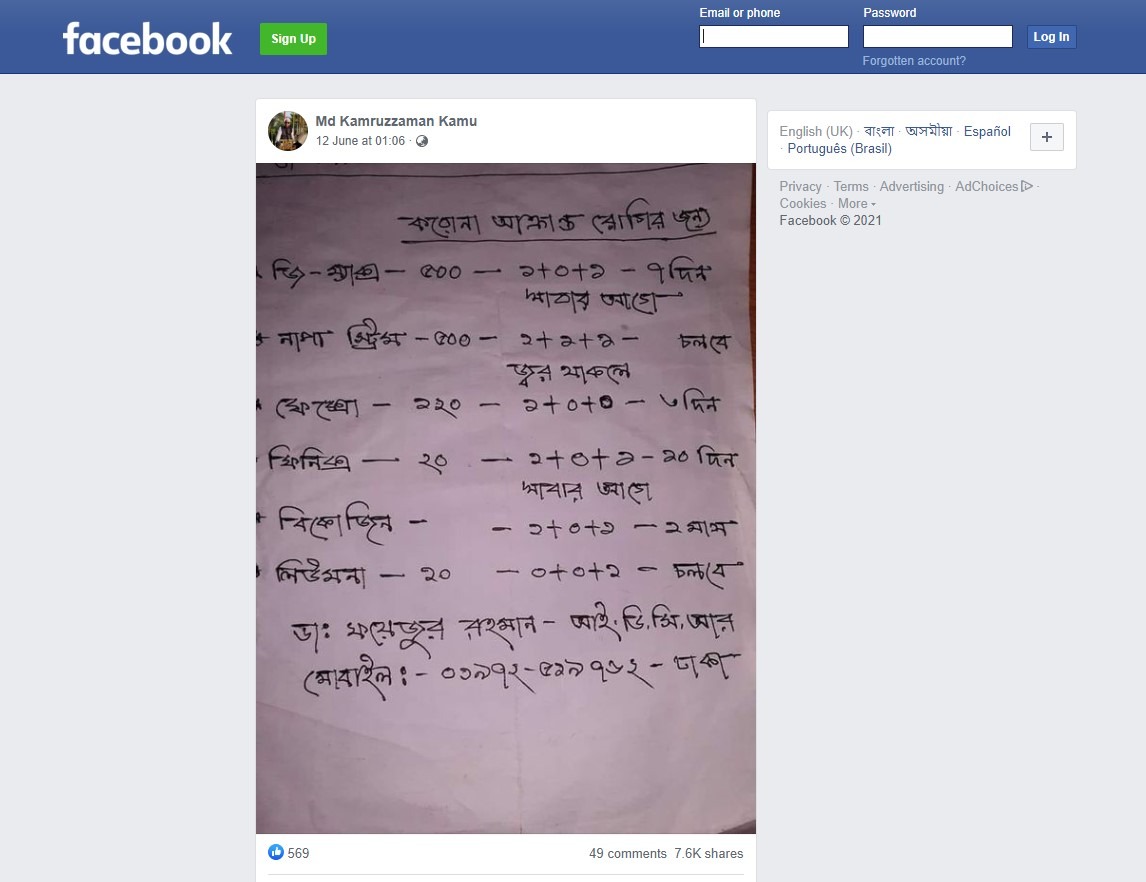 facebook
Sign Up
Email or phone
Password
Log In
Forgotten account?
Md Kamruzzaman Kamu
12 June at 01:06 ·
করোনা আক্রান্ত রোগির জন্য
জি-ম্যাক্স — ৫০০ — ১+০+১ – ৭ দিন
খাবার আগে
নাপা — ৫০০ — ২+২+২ — চলবে
জ্বর থাকলে
ফেক্সো — ১২০ — ১+০+০ — ৩ দিন
ফিনিক্স — ২০ — ১+০+১ – ২০ দিন
খাবার আগে
বিকোজিন — — ১+০+১ — ২ মাস
লিউমনা — ১০ — ০+০+১ — চলবে
ডাঃ ফয়েজুর রহমান – আই.ডি.সি.আর
মোবাইল:- – ঢাকা
569
49 comments 7.6K shares
English (UK) · বাংলা · অসমীয়া · Español
· Português (Brasil)
+
Privacy · Terms · Advertising · AdChoices ·
Cookies · More
Facebook © 2021